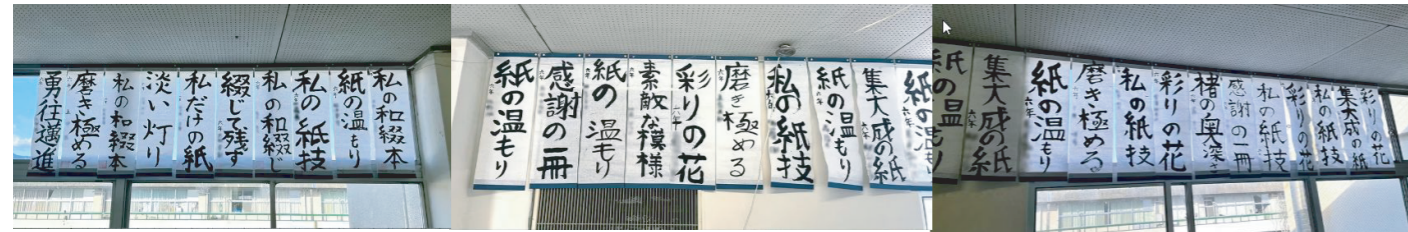 勇往邁進
磨き極める
私の和綴本
淡い灯り
私だけの紙
綴じて残す
私の和綴じ
私の紙技
紙の温もり
私の和綴本
紙の温もり
感謝の一冊
紙の温もり
素敵な模様
彩りの花
磨き極める
私の紙技
紙の温もり
集大成の紙
紙の温も
紙の温もり
集大成の紙
紙の温もり
磨き極める
私の紙技
彩りの花
楮の奥深さ
感謝の一冊
私の紙技
彩りの花
私の紙技
集大成の紙
彩りの花